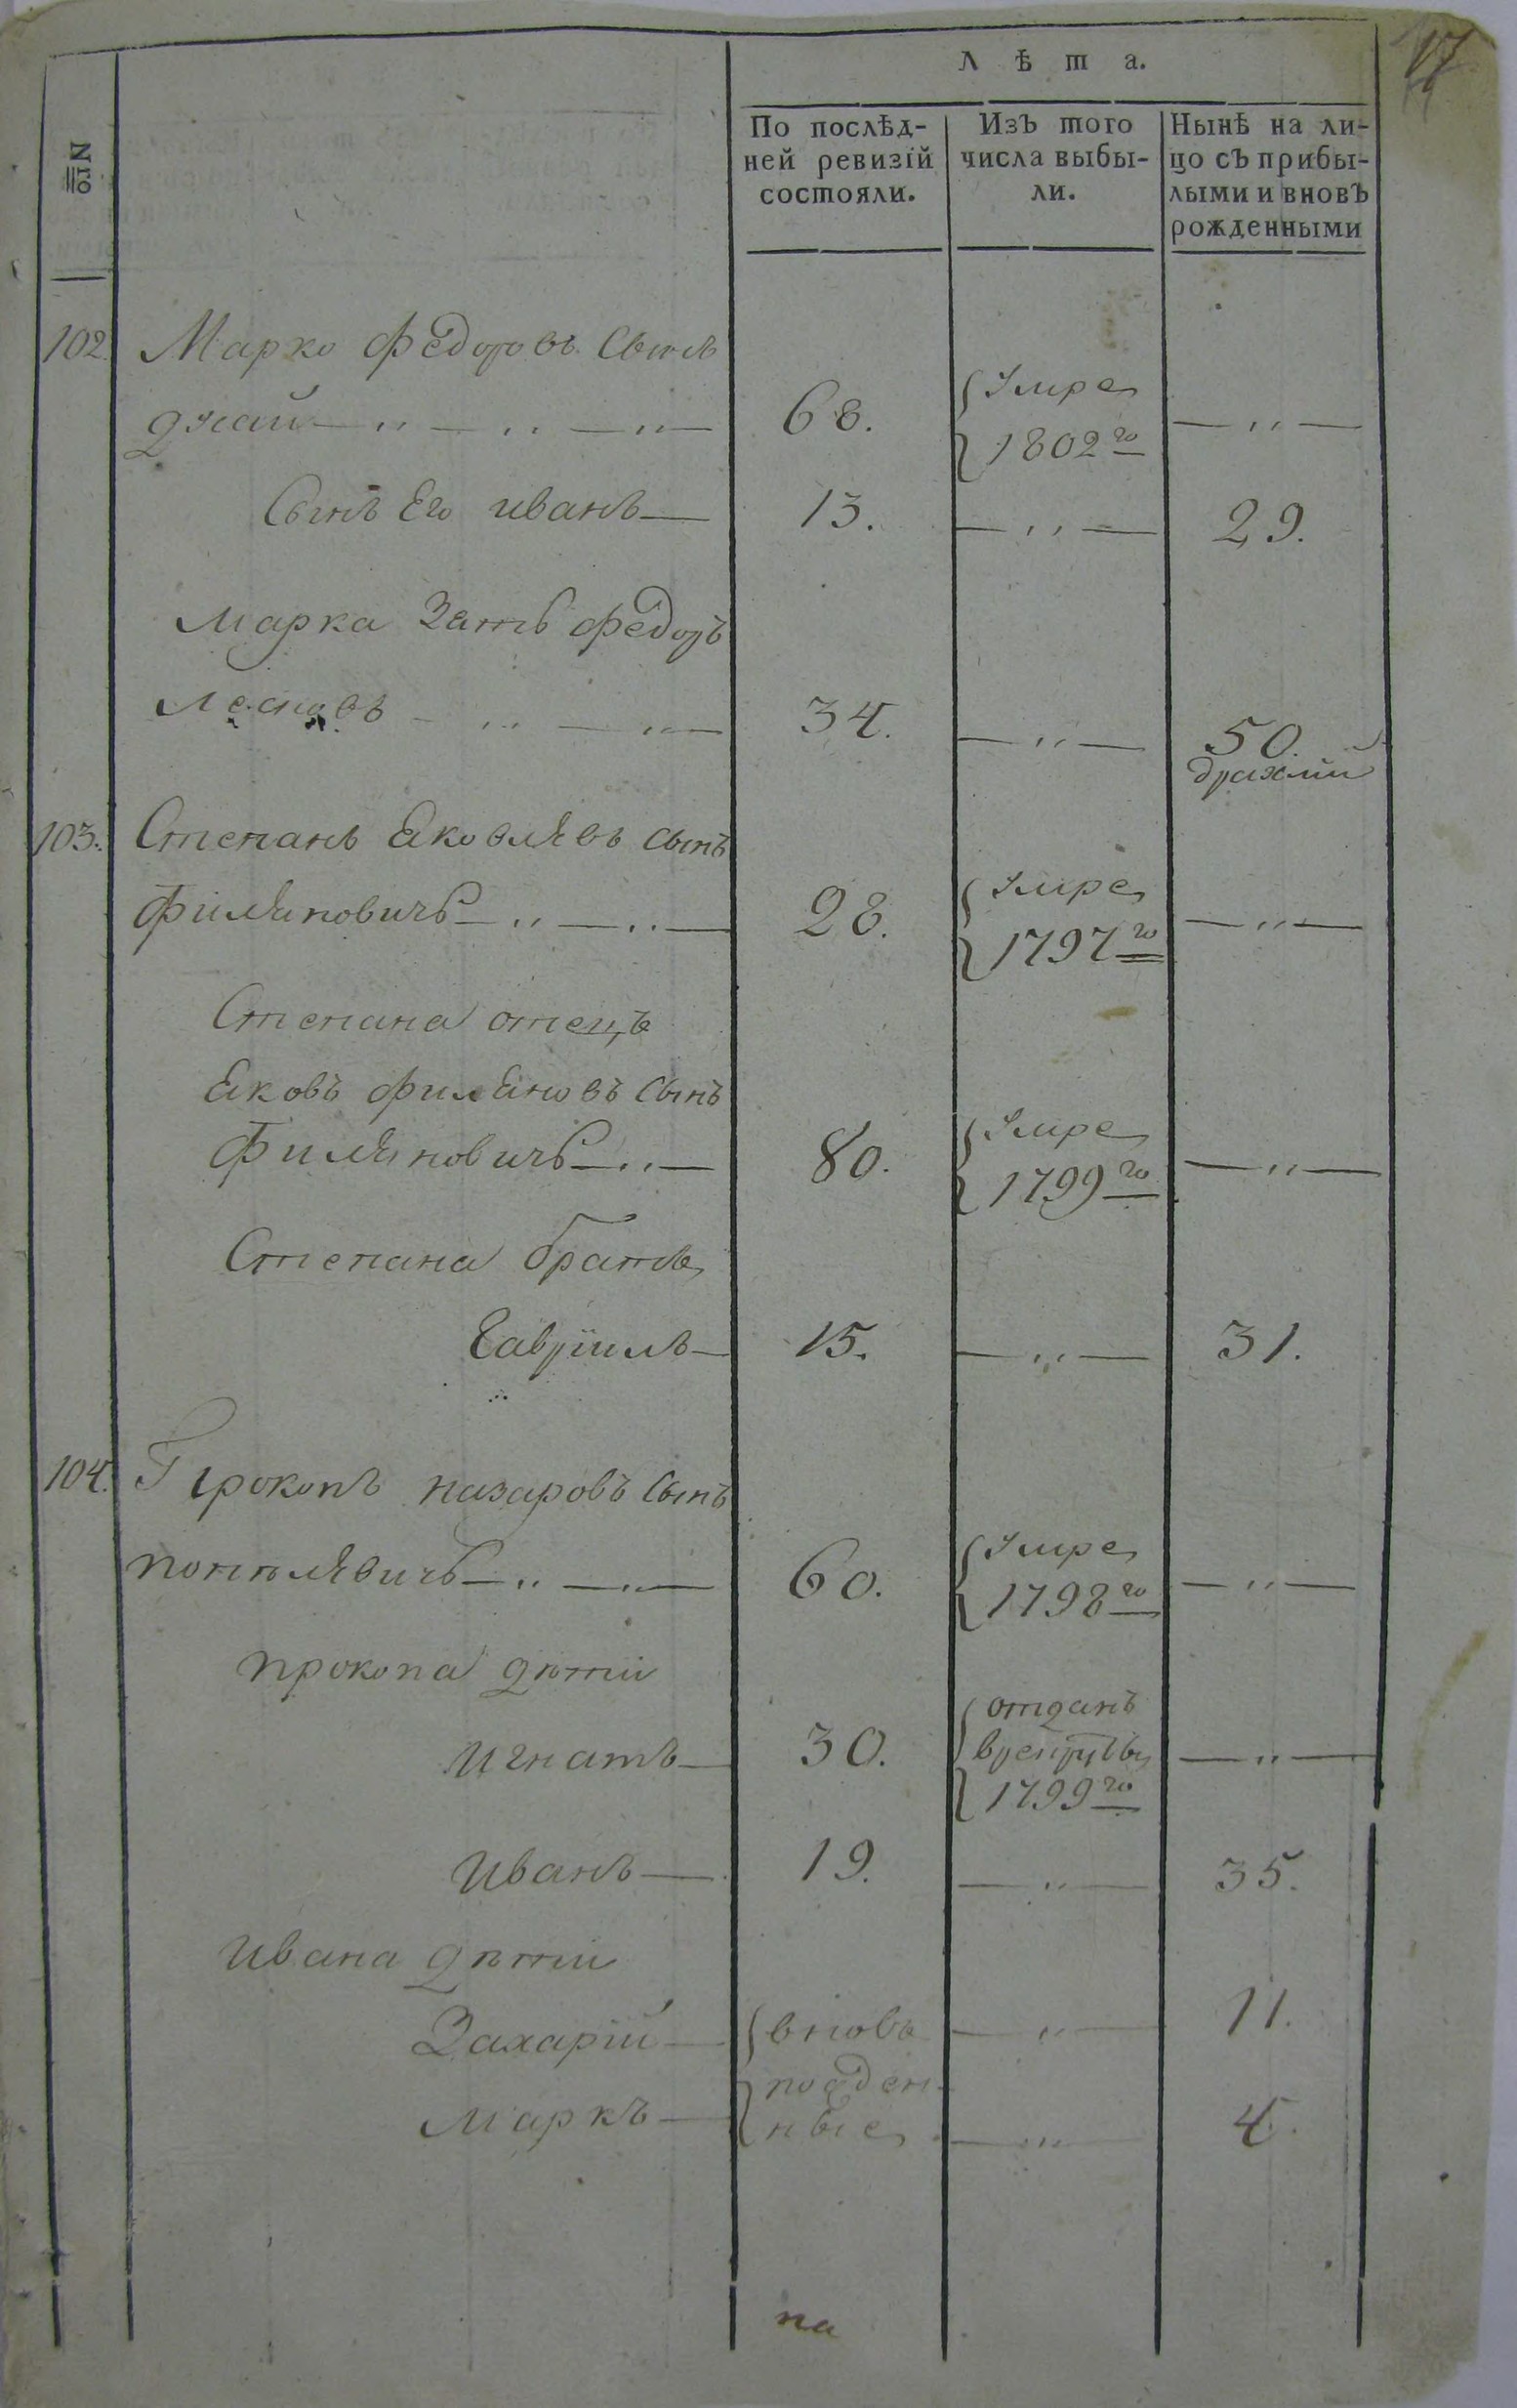 17
Лѣта.
№
По послѣд-
ней ревизїй
состояли.
Изъ того
числа выбы-
ли.
Нынѣ на ли-
цо съ прибы-
лыми и вновь
рожденными
102. Марко Федоровъ Сынъ
68. Умре 1802го — „ —
Сынъ Его иванъ — 13. — „ — 29.
Марка Зять Федоръ
34. — „ — 50.
дряхлый
103. Степанъ Яковлявъ сынъ
Филяновичъ — „ — „ — 28. Умре 1797го — „ —
Степана отецъ
Яковъ Филяновъ Сынъ
Филяновичъ — „ — 80. Умре 1799го — „ —
Степана братъ
Гаврїилъ — 15. — „ — 31.
104. Прокопъ назаровъ Сынъ
60. Умре 1798го — „ —
прокопа дѣти
Игнатъ — 30. отданъ
врекруты
1799го — „ —
Иванъ — 19. — „ — 35.
Ивана дѣти
Захарїй — вновь — „ — 11.
рожден-
Маркъ — ные — „ — 4.
на